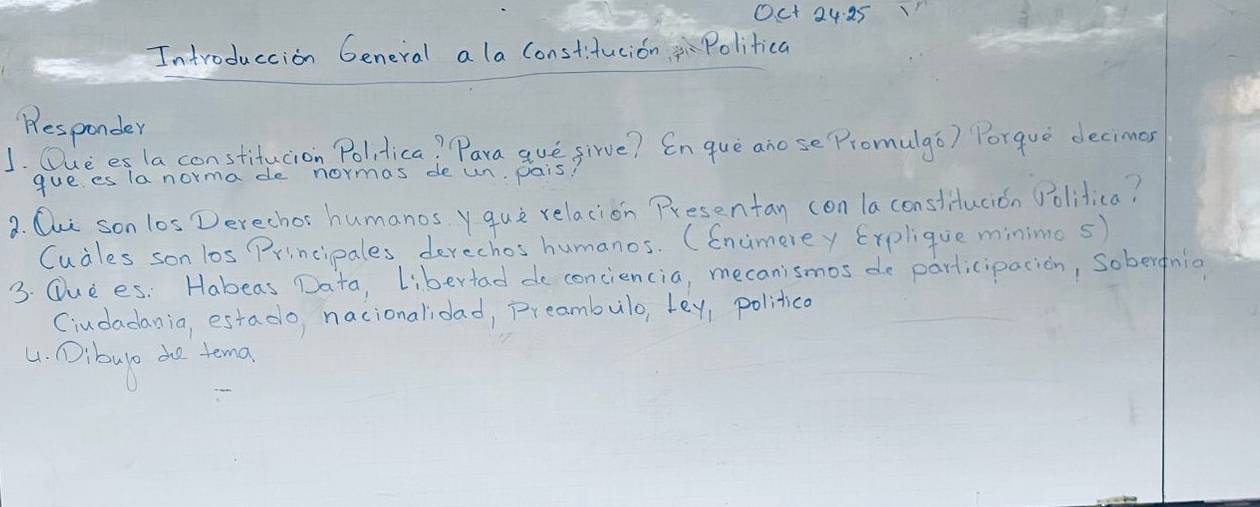 Oct 24·25
Introducción General a la Constitución Politica
Responder
1. Qué es la constitucion Politica? Para qué sirve? En qué año se Promulgó? Porqué decimos
que es la norma de normas de un país?
2. Qui son los Derechos humanos y qué relación Presentan con la constitución Politica?
Cuáles son los Principales derechos humanos. (Enúmere y Explique minimo 5)
3. Qué es: Habeas Data, Libertad de conciencia, mecanismos de participación, Soberania
Ciudadania, estado, nacionalidad, Preambulo, Ley, politico
4. Dibujo del tema.